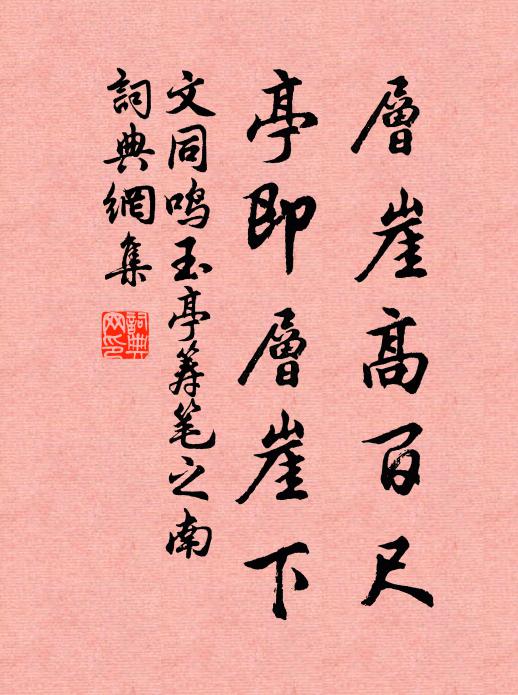 層崖高百尺
亭即層崖下
文同鸣玉亭筹笔之南
詞典網集
詞典网印